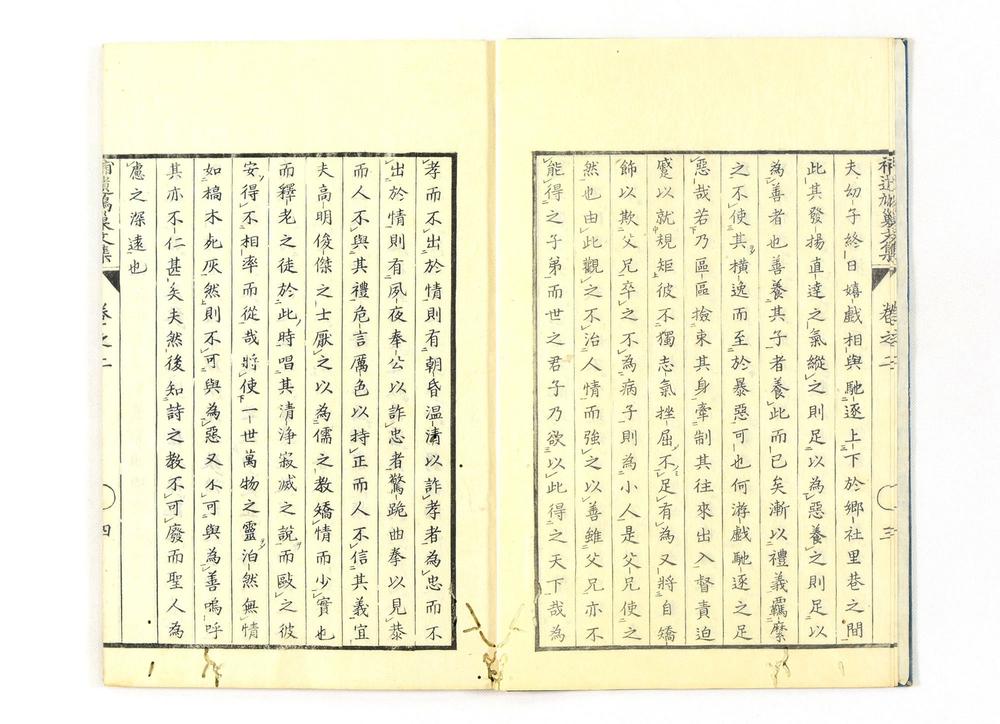 卷之二
三
夫幼子終日嬉戲相與馳逐上下於鄉社里巷之間
此其發揚直達之氣縱之則足以為惡養之則足以
為善者也善養其子者養此而已矣漸以禮義羈縻
之不使其橫逸而至於暴惡可也何游戲馳逐之足
惡哉若乃區區撿束其身牽制其往來出入督責迫
蹙以就規矩彼不獨志氣挫屈不足有為又將自矯
飾以欺父兄卒之不為病子則為小人是父兄使之
然也由此觀之不治人情而強之以善雖父兄亦不
能得之子弟而世之君子乃欲以此得之天下哉為
孝而不出於情則有朝昏溫凊以詐孝者為忠而不
出於情則有夙夜奉公以詐忠者驚跪曲拳以見恭
而人不與其禮危言厲色以持正而人不信其義宜
夫高明俊傑之士厭之以為儒之教矯情而少實也
而釋老之徒於此時唱其清淨寂滅之說而歐之彼
安得不相率而從哉將使一世萬物之靈泊然無情
如槁木死灰然則不可與為惡又不可與為善嗚呼
其亦不仁甚矣夫然後知詩之教不可廢而聖人為
慮之深遠也
卷之二
四